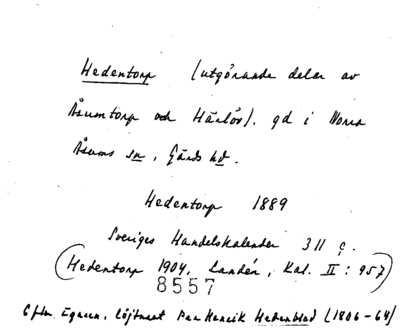 Hedentorp (utgörande delar av
Åsumtorp och Härlöv). gd i Norra
Åsums sn, Gärds hd.
Hedentorp 1889
Sveriges Handelskalender 311 ç.
(Hedentorp 1904, Landén, Kal. II: 957)
8557
Efter Egaren, Löjtnant Per Henrik Hedenblad (1806-64)